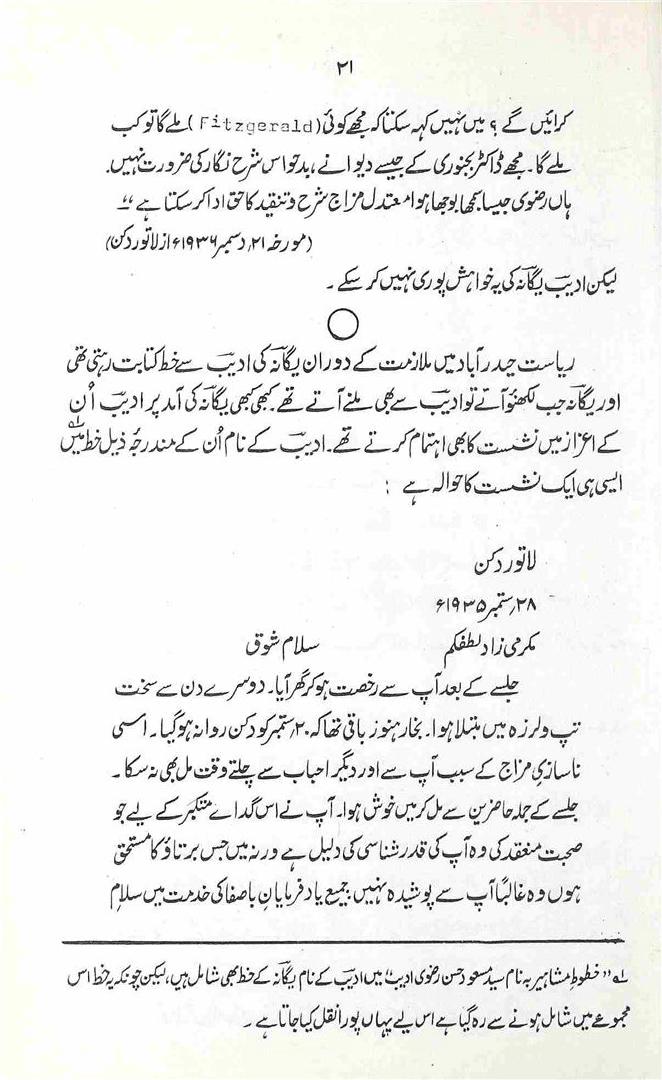 ۲۱
کرائیں گے ؟ میں نہیں کہہ سکتا کہ مجھے کوئی (Fitzgerald) ملے گا تو کب
ملے گا۔ مجھے ڈاکٹر بجنوری کے جیسے دیوانے، بدحواس شرح نگار کی ضرورت نہیں۔
ہاں رضوی جیسا سمجھا بوجھا ہوا معتدل مزاج شرح و تنقید کا حق ادا کر سکتا ہے ۔"
(مورخہ ۲۱ دسمبر ۱۹۳۶ء از لاتور دکن)
لیکن ادیبؔ یگانہؔ کی یہ خواہش پوری نہیں کر سکے ۔
ریاست حیدرآباد میں ملازمت کے دوران یگانہؔ کی ادیبؔ سے خط کتابت رہتی تھی
اور یگانہؔ جب لکھنؤ آتے تو ادیبؔ سے بھی ملنے آتے تھے۔ کبھی کبھی یگانہؔ کی آمد پر ادیبؔ اُن
کے اعزاز میں نشست کا بھی اہتمام کرتے تھے۔ ادیبؔ کے نام اُن کے مندرجۂ ذیل خط میں لہ
ایسی ہی ایک نشست کا حوالہ ہے :
لاتور دکن
۲۸ ستمبر ۱۹۳۵ء
مکرمی زاد لطفکم سلام شوق
جلسے کے بعد آپ سے رخصت ہو کر گھر آیا۔ دوسرے دن سے سخت
تپ و لرزہ میں مبتلا ہوا۔ بخار ہنوز باقی تھا کہ ۲۰ ستمبر کو دکن روانہ ہو گیا۔ اسی
ناسازیِ مزاج کے سبب آپ سے اور دیگر احباب سے چلتے وقت مل بھی نہ سکا۔
جلسے کے جملہ حاضرین سے مل کر میں خوش ہوا۔ آپ نے اس گداے متکبر کے لیے جو
صحبت منعقد کی وہ آپ کی قدر شناسی کی دلیل ہے ورنہ میں جس برتاؤ کا مستحق
ہوں وہ غالباً آپ سے پوشیدہ نہیں جمیع یاد فرمایانِ باصفا کی خدمت میں سلام
لہ "خطوطِ مشاہیر بہ نام سید مسعود حسن رضوی ادیب" میں ادیبؔ کے نام یگانہؔ کے خط بھی شامل ہیں، لیکن چونکہ یہ خط اس
مجموعے میں شامل ہونے سے رہ گیا ہے اس لیے یہاں پورا نقل کیا جاتا ہے ۔